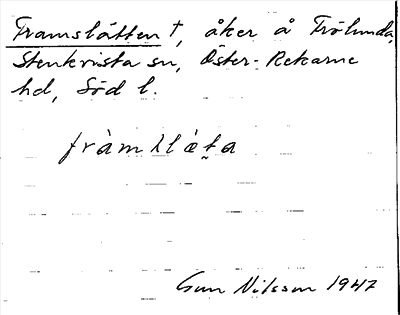 Framslåtten †, åker å Frölunda,
Stenkvista sn, Öster-Rekarne
hd, Söd l.
Gun Nilsson 1947